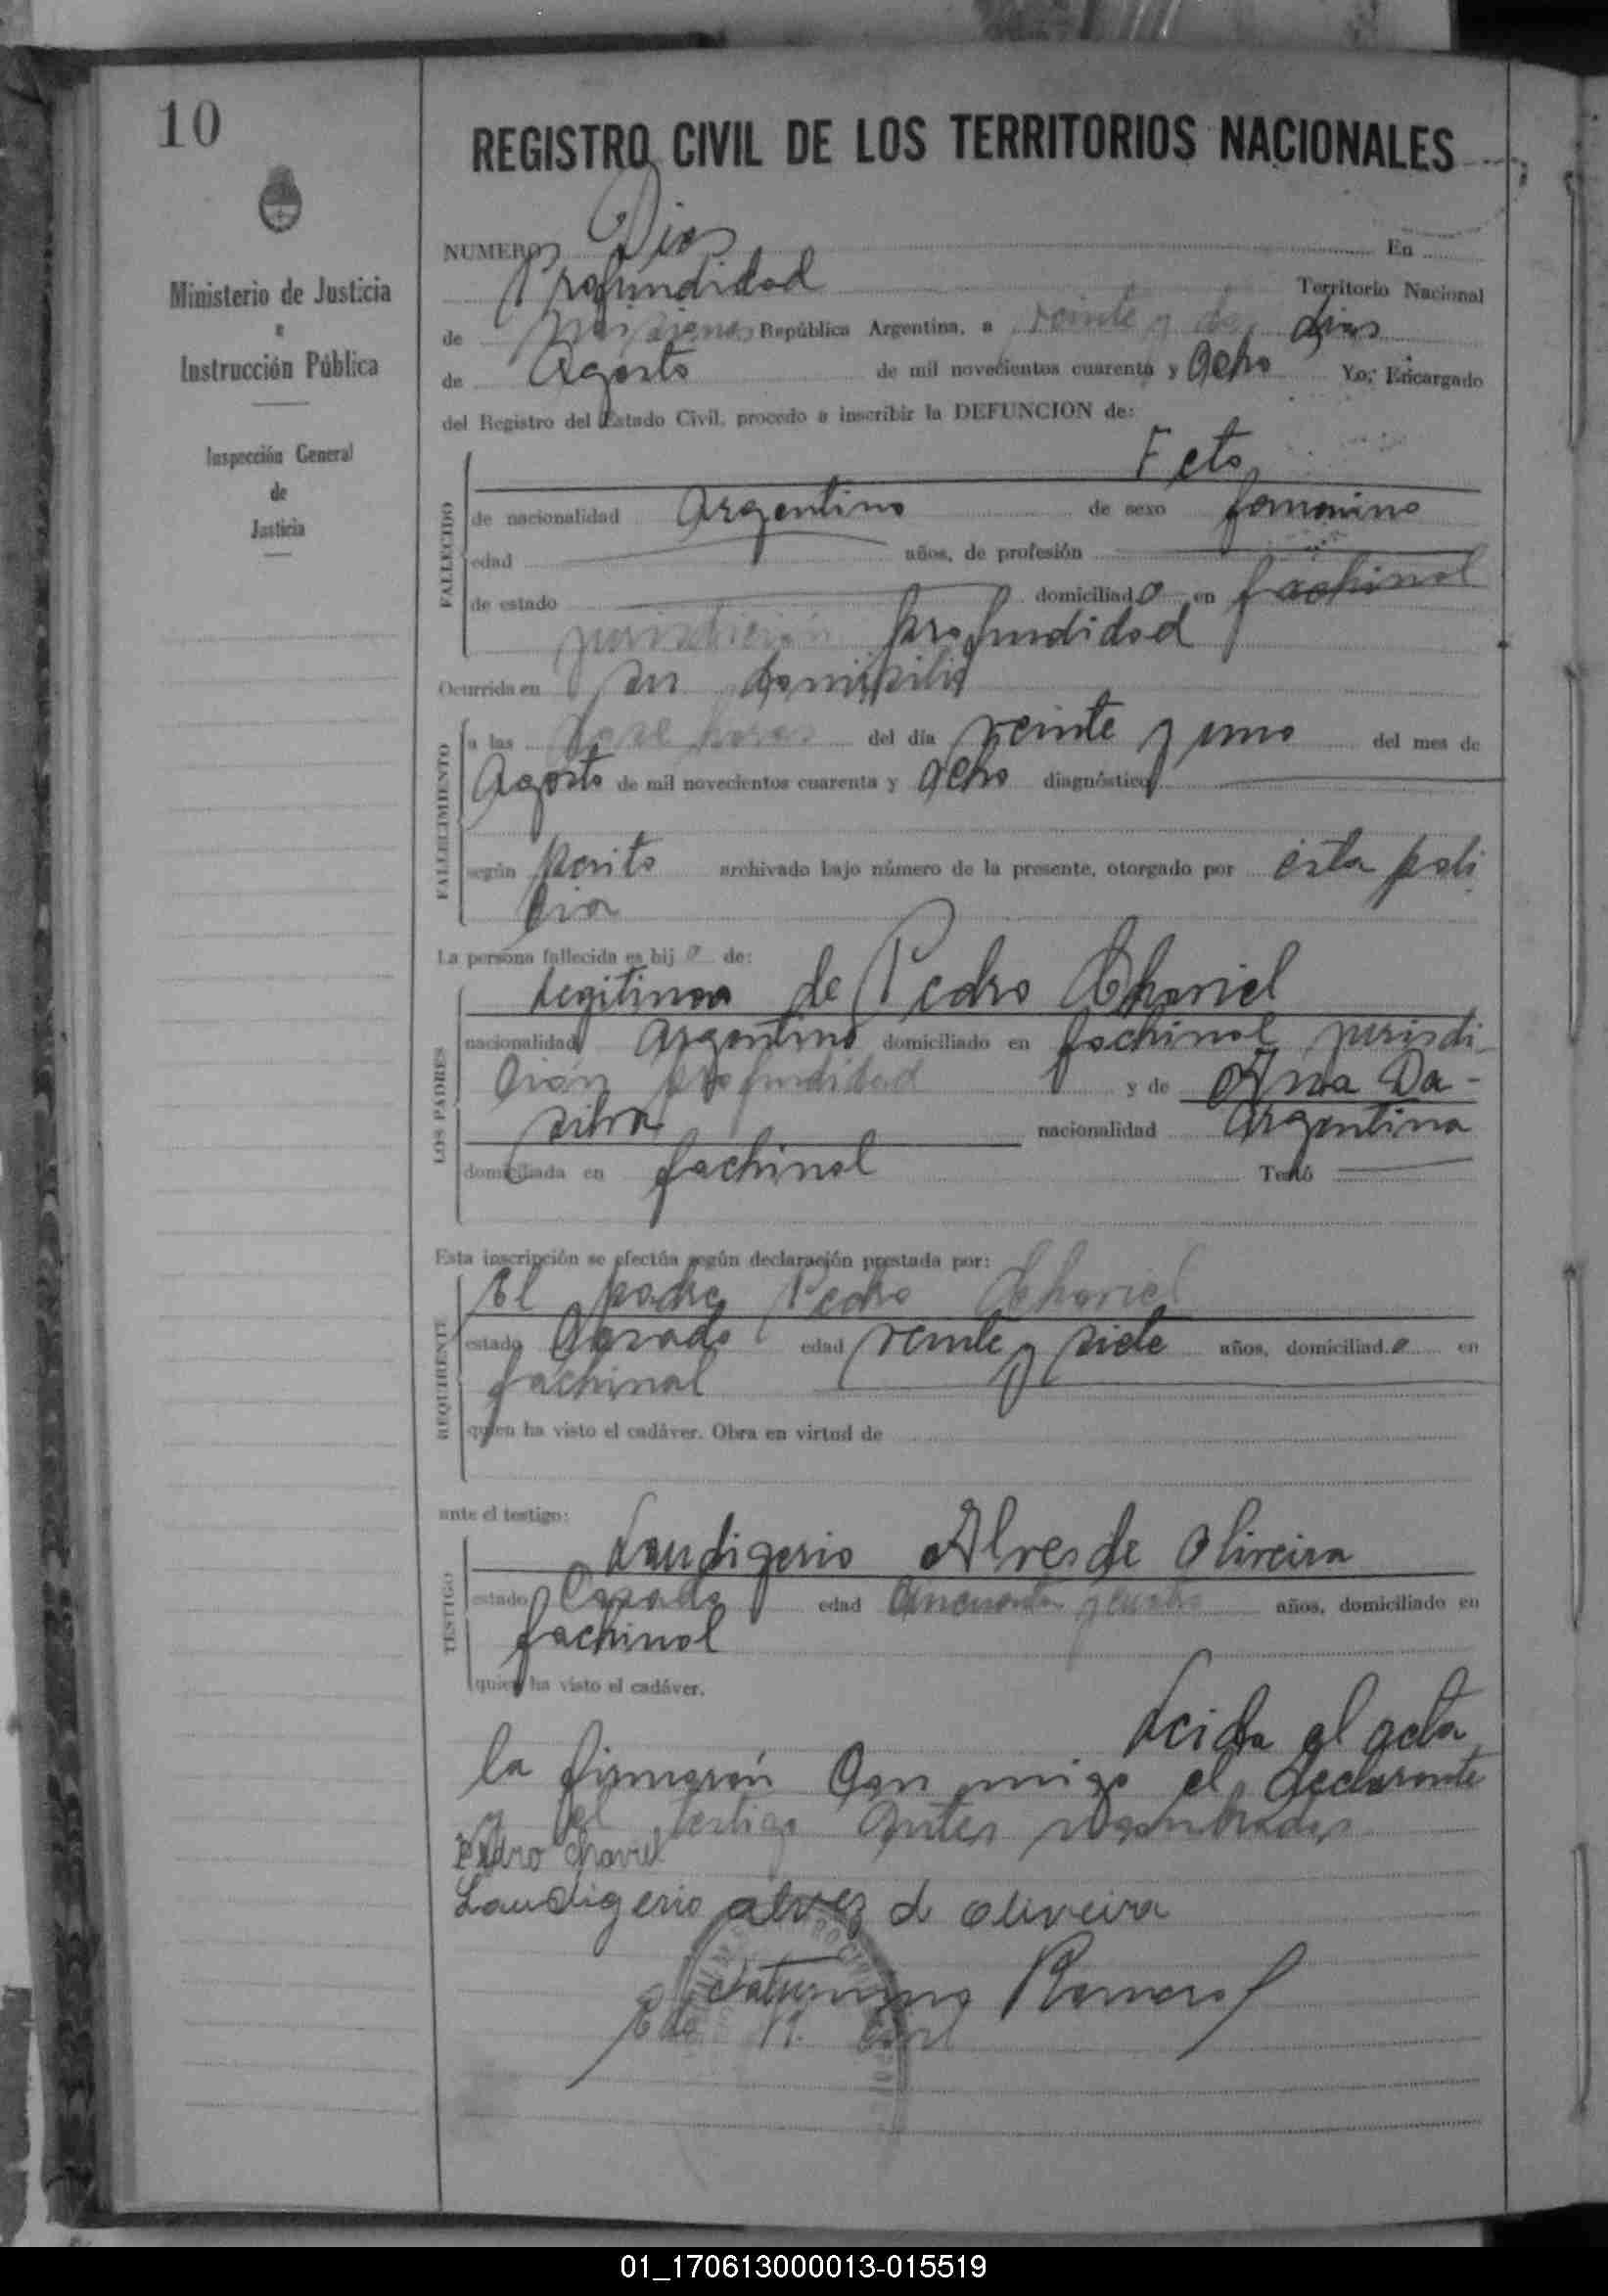 10
Ministerio de Justicia
e
Instrucción Pública
Inspección General
de
Justicia
REGISTRO CIVIL DE LOS TERRITORIOS NACIONALES
NUMERO Dies En
Profundidad Territorio Nacional
de Misiones República Argentina, a veinte y dos dias
de Agosto de mil novecientos cuarenta y Ocho Yo, Encargado
del Registro del Estado Civil, procedo a inscribir la DEFUNCION de:
FALLECIDO
Feto
de nacionalidad Argentino de sexo femenino
edad años, de profesión
de estado domiciliado en fachinal
jurisdicion profundidad
Ocurrida en su domisilio
FALLECIMIENTO
a las horas del día veinte y uno del mes de
Agosto de mil novecientos cuarenta y Ocho diagnóstico
según perito archivado bajo número de la presente, otorgado por esta poli
cia
La persona fallecida es hijo de:
LOS PADRES
Legitimo de Pedro Chaviel
nacionalidad Argentino domiciliado en fachinal jurisdi-
cion profundidad y de Ana Da-
silva nacionalidad Argentina
domiciliada en fachinal Testó
Esta inscripción se efectúa según declaración prestada por:
REQUIRENTE
El padre Pedro Chaviel
estado Casado edad veinte y siete años, domiciliado en
fachinal
quien ha visto el cadáver. Obra en virtud de
ante el testigo:
TESTIGO
Laudigerio Alves de Oliveira
estado Casado edad Cincuenta y cuatro años, domiciliado en
fachinal
quien ha visto el cadáver.
Leida el acta
la firmarón Con migo el declarante
y el testigo Antes nombrados
Pedro Chaviel
Laudigerio alvez d oliveira
Saturnino Romero
Edo R. Civil
01_170613000013-015519